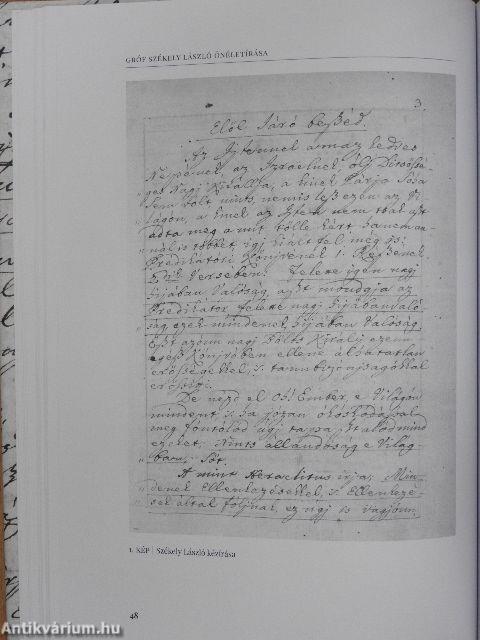 GRÓF SZÉKELY LÁSZLÓ ÖNÉLETÍRÁSA
3.
Elöl Járó beszéd.
Az Istennek ama kedves
Népének, az Izraelnek, oly Dicsőssé-
ges Nagy Királlya, a kinek Párja Sóha
sem volt, nints, nemis lesz ezen az Vi-
lágon, a kinek az Isten nem tsak azt
adta meg a mit tölle kért, hanem an-
nál is többet, igy kiált fel
Prédikátori Könyvének 1. Részének
Versében: Felette igen nagy
hijában valóság, azt mondgya az
Prédikátor, felette nagy hijában való-
ság, ezek mindenek hijában valóság
Ezt azonn nagy Bölts Király ezenn
egész Könyvében ellene álhatatlan
erősségekkel, s tanubizonyságokkal
erőssiti.
De nézd el Oh! Ember, e Világon
mindent, s ha józan okoskodással
meg fontolod, úgy tapasztalod mind
ezeket, Nints állandóság e Világ-
ban, Sőt
A mint Heraclitus irja, Min-
denek Ellenkezésekkel, s Ellenkezé-
sek által foljnak, ez úgy is vagyon,
1. KÉP | Székely László kézírása
48
Antikvárium.hu